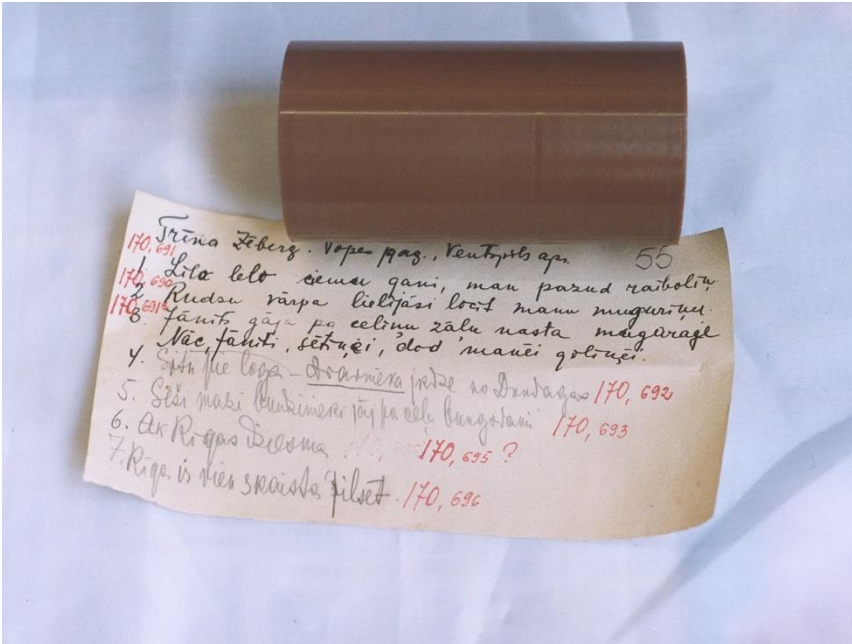 Trīna Zēberg. Vopes pag., Ventspils apr. 55
170,691
1. Lilo lelo ciema gani, man pazud raibaliņ
170,690
2. Rudzu vārpa lielījāsi locīt manu muguriņu.
170,691a
3. Jānīts gāja pa celiņu zāļu nasta mugurāge
Nāc, Jānīti, sētiņēi, dod manēi gotiņēi.
4. Situ pie loga – no Dundagas 170,692
5. Seši mazi bundzinieki jāj pa ceļu bungodami 170,693
6. Ak Rīgas Dziesma 170,695 ?
7. Rīga is vien skaista pilsēt. 170,696